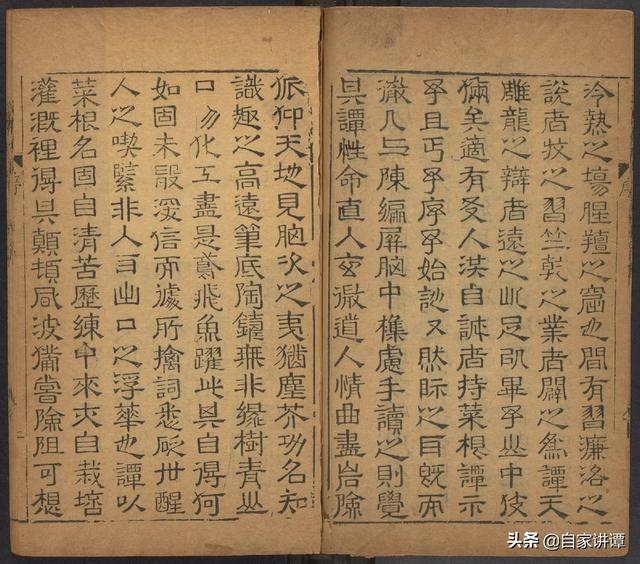 冷熱之塲腥羶之窟也間有習濂洛之
說者牧之習竺乾之業者闢之為譚天
雕龍之辯者遠之此足以畢予山中伎
倆矣適有友人洪自誠者持菜根譚示
予且丐予序予始訑又然眎之耳既而
徹几上陳編屏胸中襍慮手讀之則覺
其譚性命直入玄微道人情曲盡岩險
俯仰天地見胸次之夷猶塵芥功名知
識趣之高遠筆底陶鑄無非綠樹青山
口吻化工盡是鳶飛魚躍此其自得何
如固未能深信而據所擒詞悉砭世醒
人之喫緊非入耳出口之浮華也譚以
菜根名固自清苦歷練中來亦自栽培
灌溉裡得其顛頓風波備嘗險阻可想
序
头条 @自家讲谭